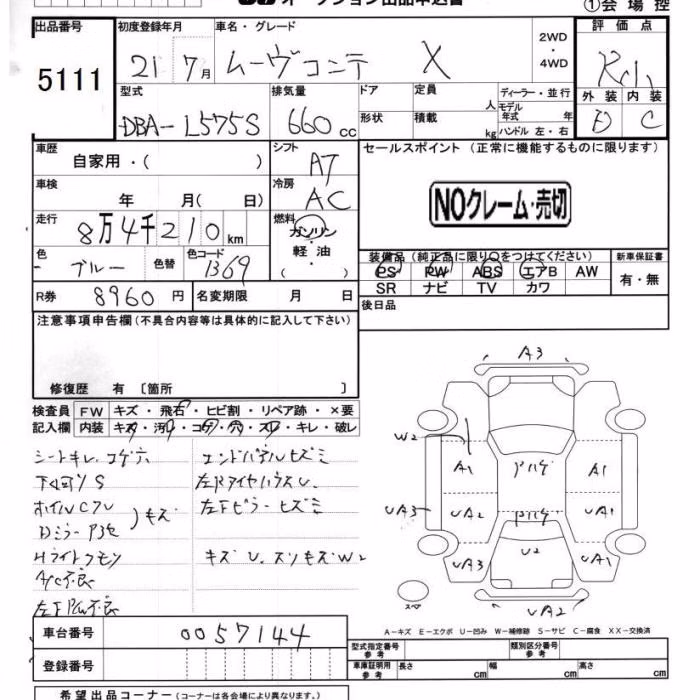 オークション出品申込書
①会場控
出品番号 初度登録年月 車名・グレード 2WD 評価点
5111 21 7月 ムーヴコンテ X ・4WD
型式 排気量 ドア 定員 人 ディーラー・並行 外装 内装
DBA-L575S 660cc 形状 積載 kg モデル年式 年 D C
ハンドル 左・右
車歴 シフト セールスポイント (正常に機能するものに限ります)
自家用・( ) AT
車検 冷房 NOクレーム・売切
年 月( 日) AC
走行 燃料
8万4千210km ガソリン
軽油
( ・ )
色 色替 色コード 装備品 (純正品に限り○をつけてください) 新車保証書
ブルー B69 PS PW ABS エアB AW 有・無
R券 8960円 名変期限 月 日 SR ナビ TV カワ
後日品
注意事項申告欄(不具合内容等は具体的に記入して下さい)
修復歴 有 〔箇所 〕
検査員 FW キズ・飛石・ヒビ割・リペア跡・×要
記入欄 内装 キズ・汚れ・コゲ・穴・スレ・キレ・破レ
シートキレ、コゲ穴 エンドパネルヒズミ
左RタイヤハウスU
左Fピラーヒズミ
Hライトクモリ キズU、スリキズW2
A/C不良
左FPW不良
A3
W2 A1 A1
UA3 UA2 UA1
UA3 U2 UA1
UA2
A-キズ E-エクボ U-凹み W-補修跡 S-サビ C-腐食 XX-交換済
車台番号 0057144 型式指定番号 参考 類別区分番号 参考
登録番号 車庫証明用 参考 長さ cm 幅 cm 高さ cm
希望出品コーナー(コーナーは各会場により異なります。)